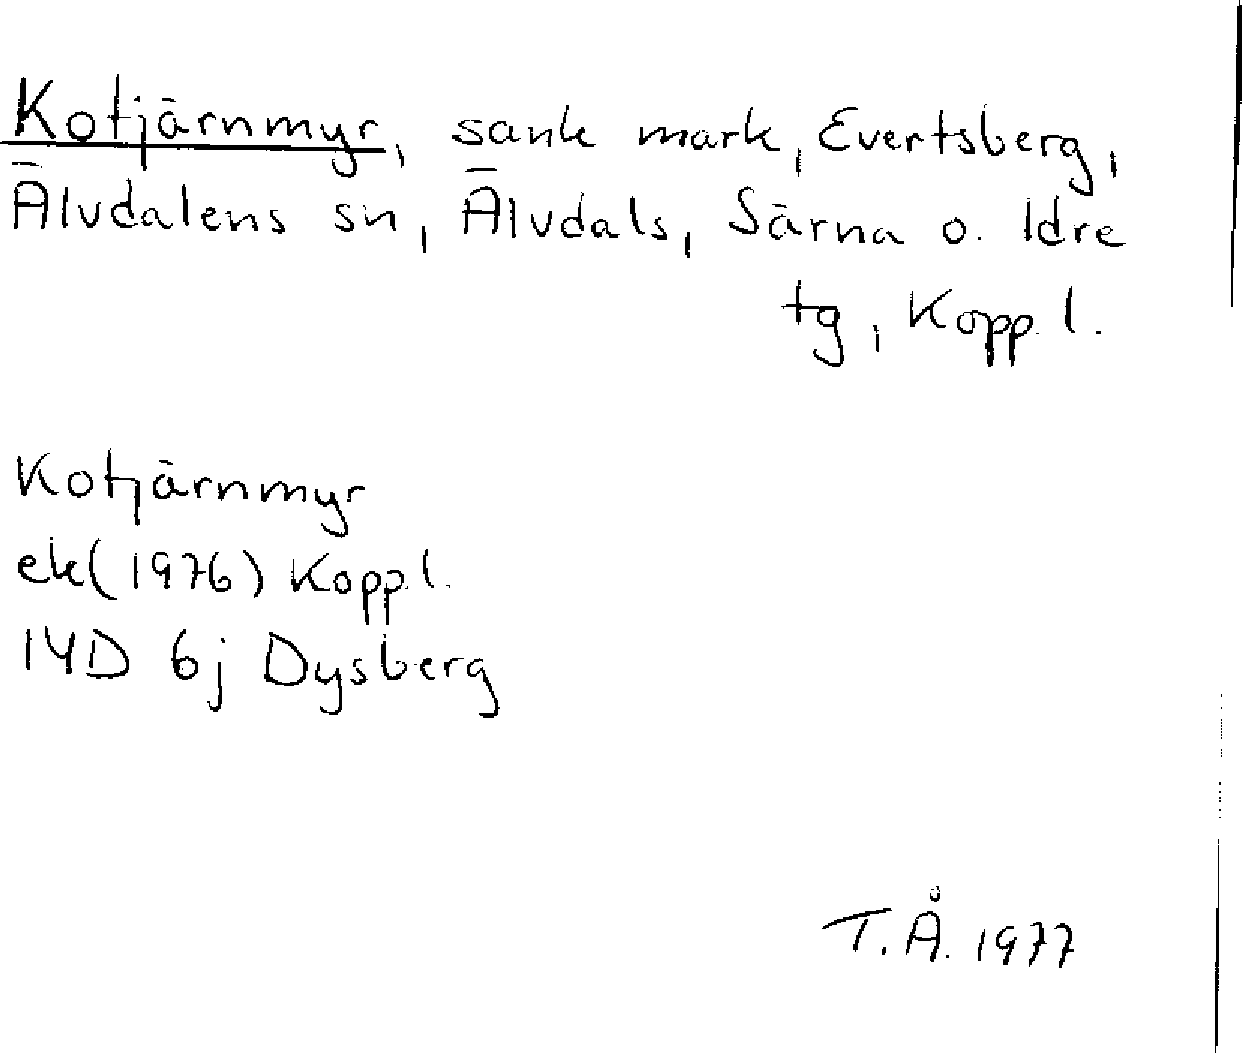 Kotjärnmyr, sank mark, Evertsberg,
Älvdalens sn, Älvdals, Särna o. Idre
tg, Kopp. l.
Kotjärnmyr
ek(1976) Kopp. l.
14D 6j Dysberg
T.Å. 1977